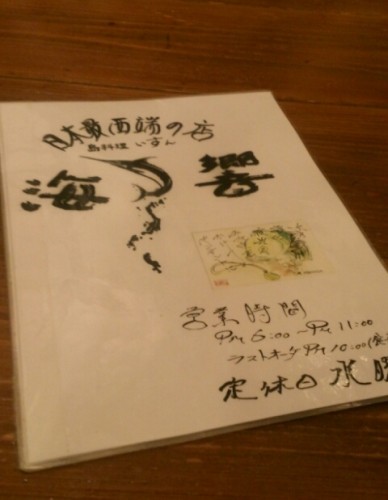 日本最西端の店
島料理 いすん
海 響
営業時間
PM 6:00 ~ PM 11:00
ラストオーダー PM 10:00
定休日 水曜